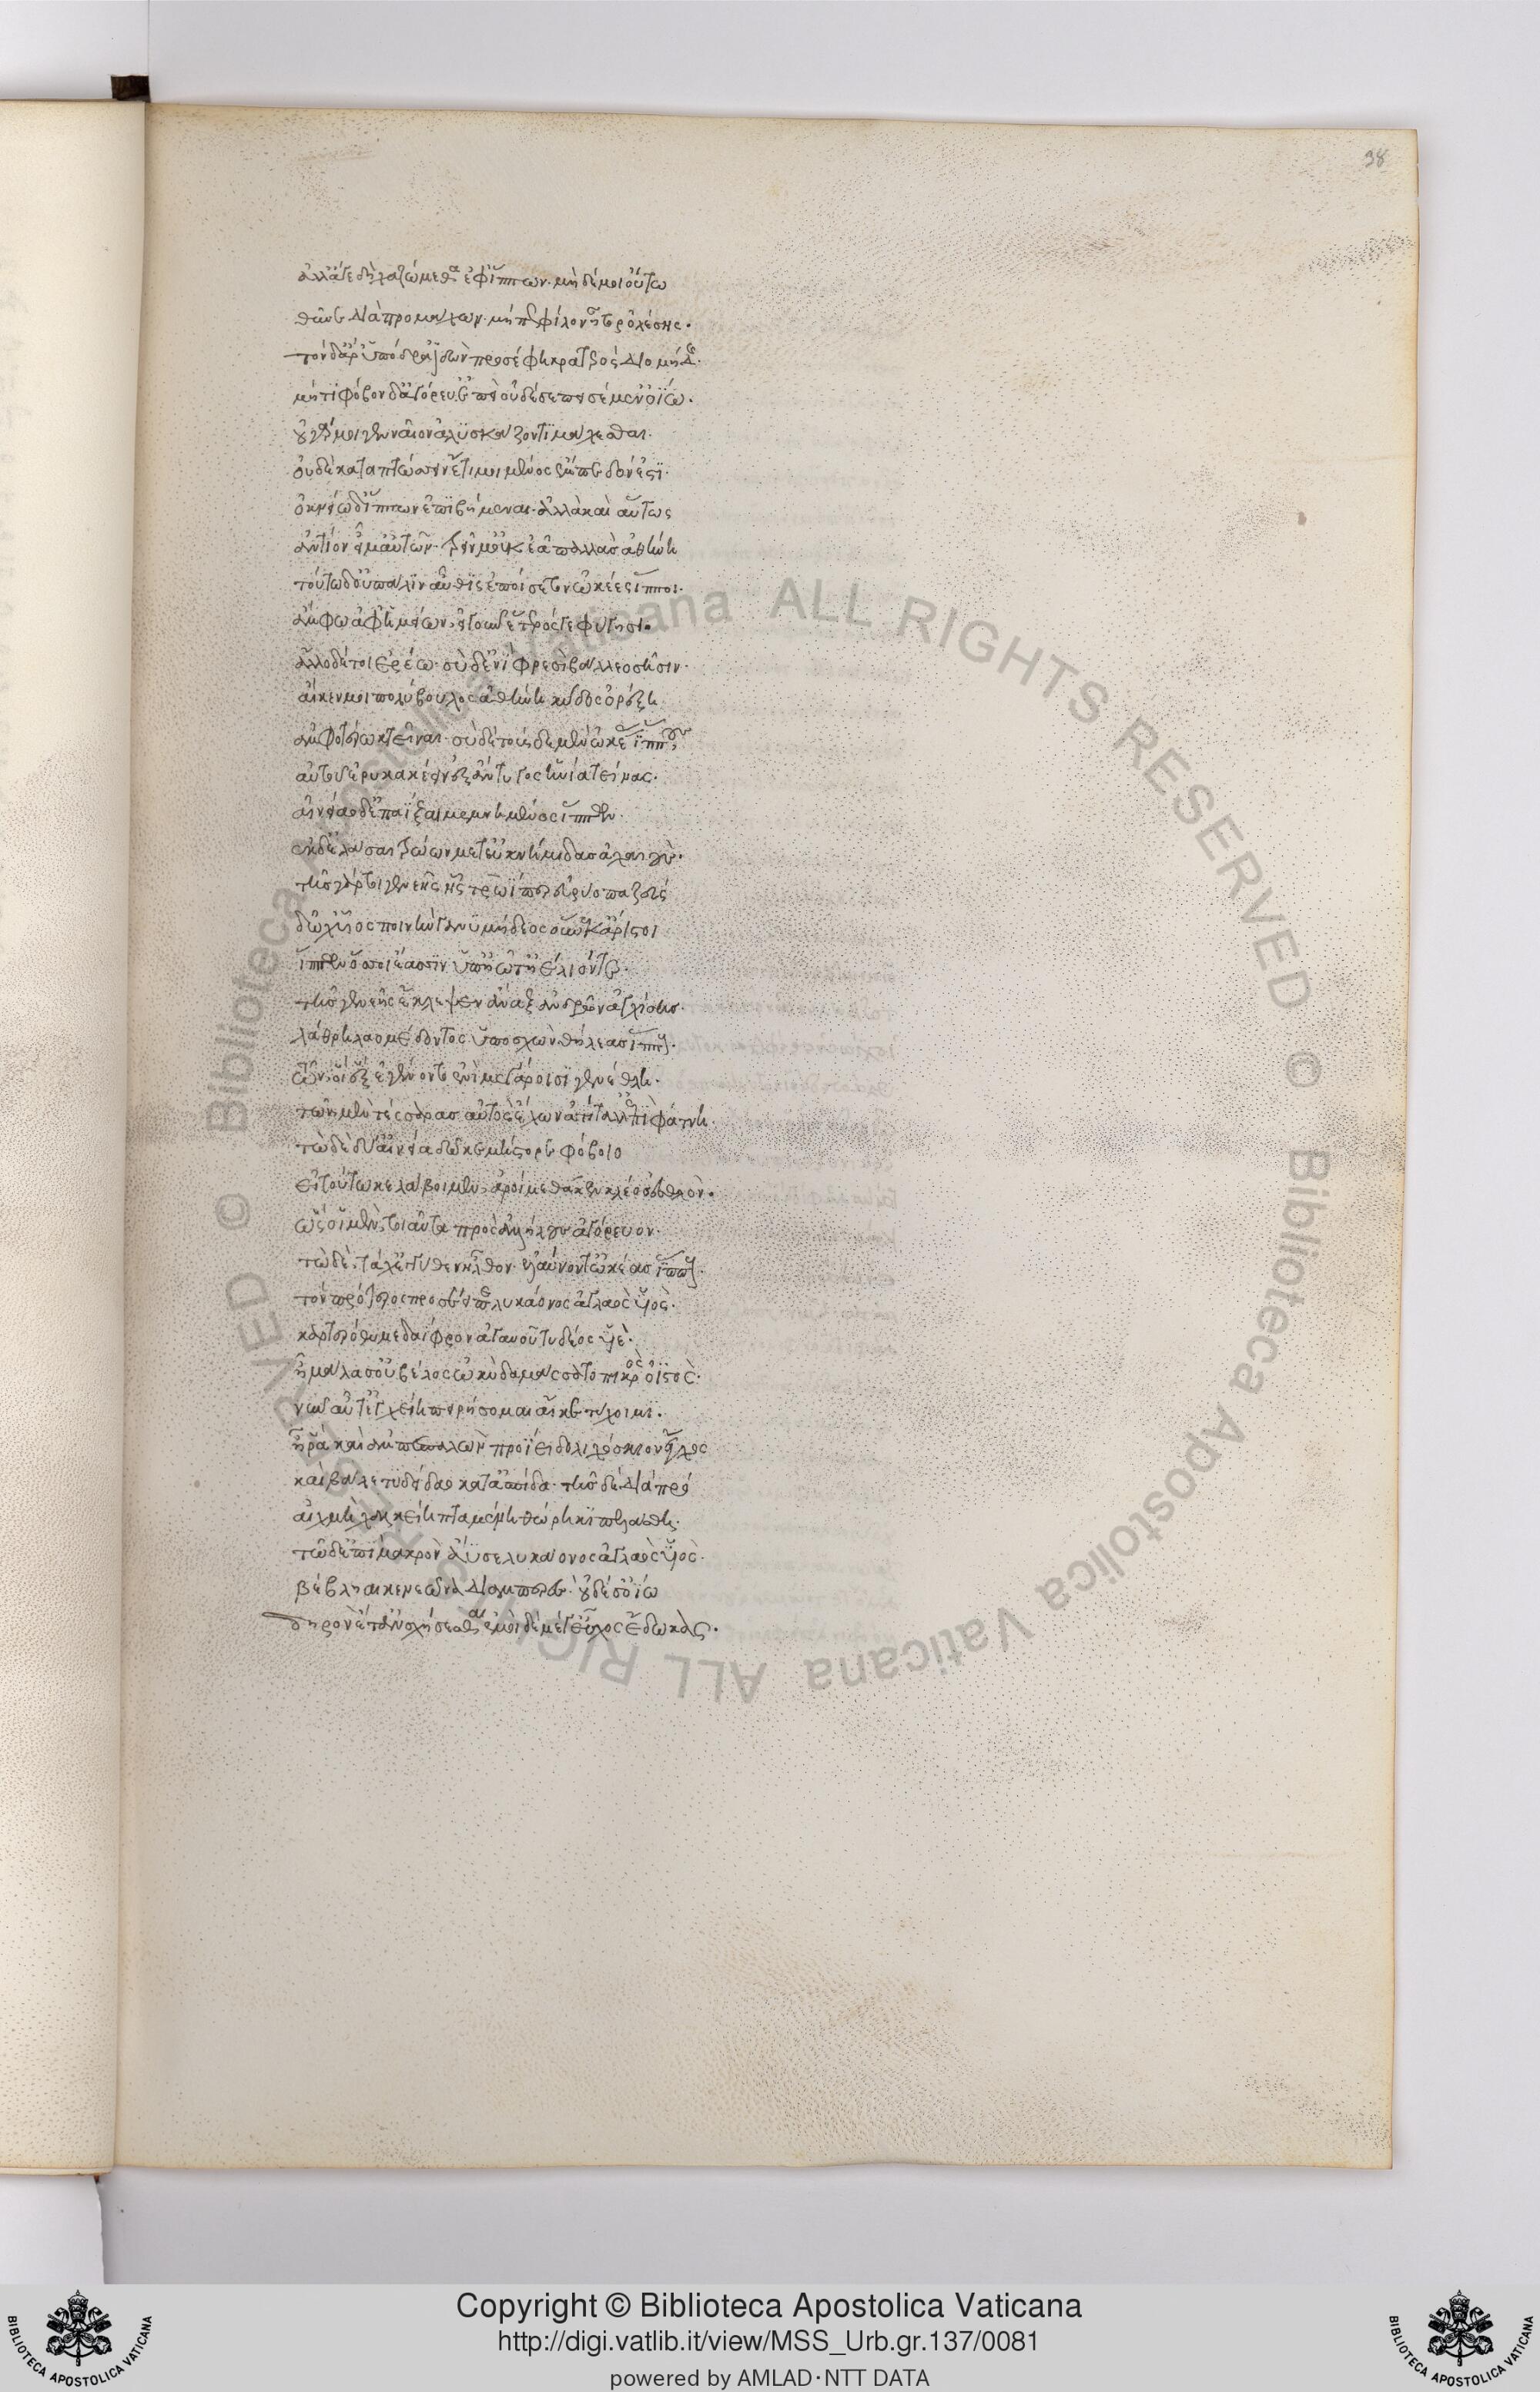 38
ἀλλ' ἄγε δὴ χαζώμεθ' ἐφ' ἵππων. μὴ δέ μοι οὕτω
θῦνε διὰ προμάχων. μή πως φίλον ἦτορ ὀλέσσῃς.
τὸν δ' ἄρ' ὑπόδρα ἰδὼν προσέφη κρατερὸς Διομήδης.
μήτι φόβον δ' ἀγόρευ' ἐπεὶ οὐδέ σε πεισέμεν οἴω.
οὐ γάρ μοι γενναῖον ἀλυσκάζοντι μάχεσθαι.
οὐδὲ καταπτώσσειν ἔτι μοι μένος ἔμπεδόν ἐστι.
ὀκνείω δ' ἵππων ἐπιβήμεναι. ἀλλὰ καὶ αὔτως
ἀντίον εἶμ' αὐτῶν. τρεῖν μ' οὐκ ἐᾷ παλλὰς ἀθήνη
τούτω δ' οὐ πάλιν αὖθις ἀποίσετον ὠκέες ἵπποι.
ἄμφω ἀφ' ἡμείων. εἰ γοῦν ἕτερός γε φύγῃσι.
ἄλλο δέ τοι ἐρέω. σὺ δ' ἐνὶ φρεσὶ βάλλεο σῇσιν.
αἴ κέν μοι πολύβουλος ἀθήνη κῦδος ὀρέξῃ
ἀμφοτέρω κτεῖναι. σὺ δὲ τούσδε μὲν ὠκέας ἵππους
αὐτοῦ ἐρυκακέειν ἐξ ἄντυγος ἡνία τείνας.
αἰνείαο δ' ἐπαΐξαι μεμνημένος ἵππων.
ἐκ δ' ἐλάσαι τρώων μετ' ἐϋκνήμιδας ἀχαιούς.
τῆς γάρ τοι γενεῆς ἧς τρωΐ περ εὐρύοπα ζεὺς
δῶχ' υἷος ποινὴν γανυμήδεος οὕνεκ' ἄριστοι
ἵππων ὅσσοι ἔασιν ὑπ' ἠῶ τ' ἠέλιόν τε.
τῆς γενεῆς ἔκλεψεν ἄναξ ἀνδρῶν ἀγχίσης.
λάθρη λαομέδοντος ὑποσχὼν θήλεας ἵππους.
τῶν οἱ ἓξ ἐγένοντο ἐνὶ μεγάροισι γενέθλη.
τῶν μὲν τέσσαρας αὐτὸς ἔχων ἀτίταλλ' ἐπὶ φάτνῃ.
τὼ δὲ δύ' αἰνείᾳ δῶκε μήστορε φόβοιο
εἰ τούτω κε λάβοιμεν, ἀροίμεθά κεν κλέος ἐσθλόν.
ὣς οἱ μὲν τοιαῦτα πρὸς ἀλλήλους ἀγόρευον.
τὼ δὲ τάχ' ἐγγύθεν ἦλθον. ἐλαύνοντ' ὠκέας ἵππους.
τὸν πρότερος προσέειπε λυκάονος ἀγλαὸς υἱός.
καρτερόθυμε δαΐφρον ἀγαυοῦ τυδέος υἱέ.
ἦ μάλα σ' οὐ βέλος ὠκὺ δαμάσσατο πικρὸς ὀϊστός.
νῦν αὖτ' ἐγχείῃ πειρήσομαι αἴ κε τύχοιμι.
ἦ ῥα καὶ ἀμπεπαλὼν προΐει δολιχόσκιον ἔγχος
καὶ βάλε τυδείδαο κατ' ἀσπίδα. τῆς δὲ διὰ πρό
αἰχμὴ χαλκείη πταμένη θώρηκι πελάσθη.
τῷ δ' ἐπὶ μακρὸν ἄϋσε λυκάονος ἀγλαὸς υἱός.
βέβληαι κενεῶνα διαμπερές. οὐδέ σ' ὀΐω
δηρὸν ἔτ' ἀνσχήσεσθαι ἐμοὶ δὲ μέγ' εὖχος ἔδωκας.
Copyright © Biblioteca Apostolica Vaticana
http://digi.vatlib.it/view/MSS_Urb.gr.137/0081
powered by AMLAD·NTT DATA